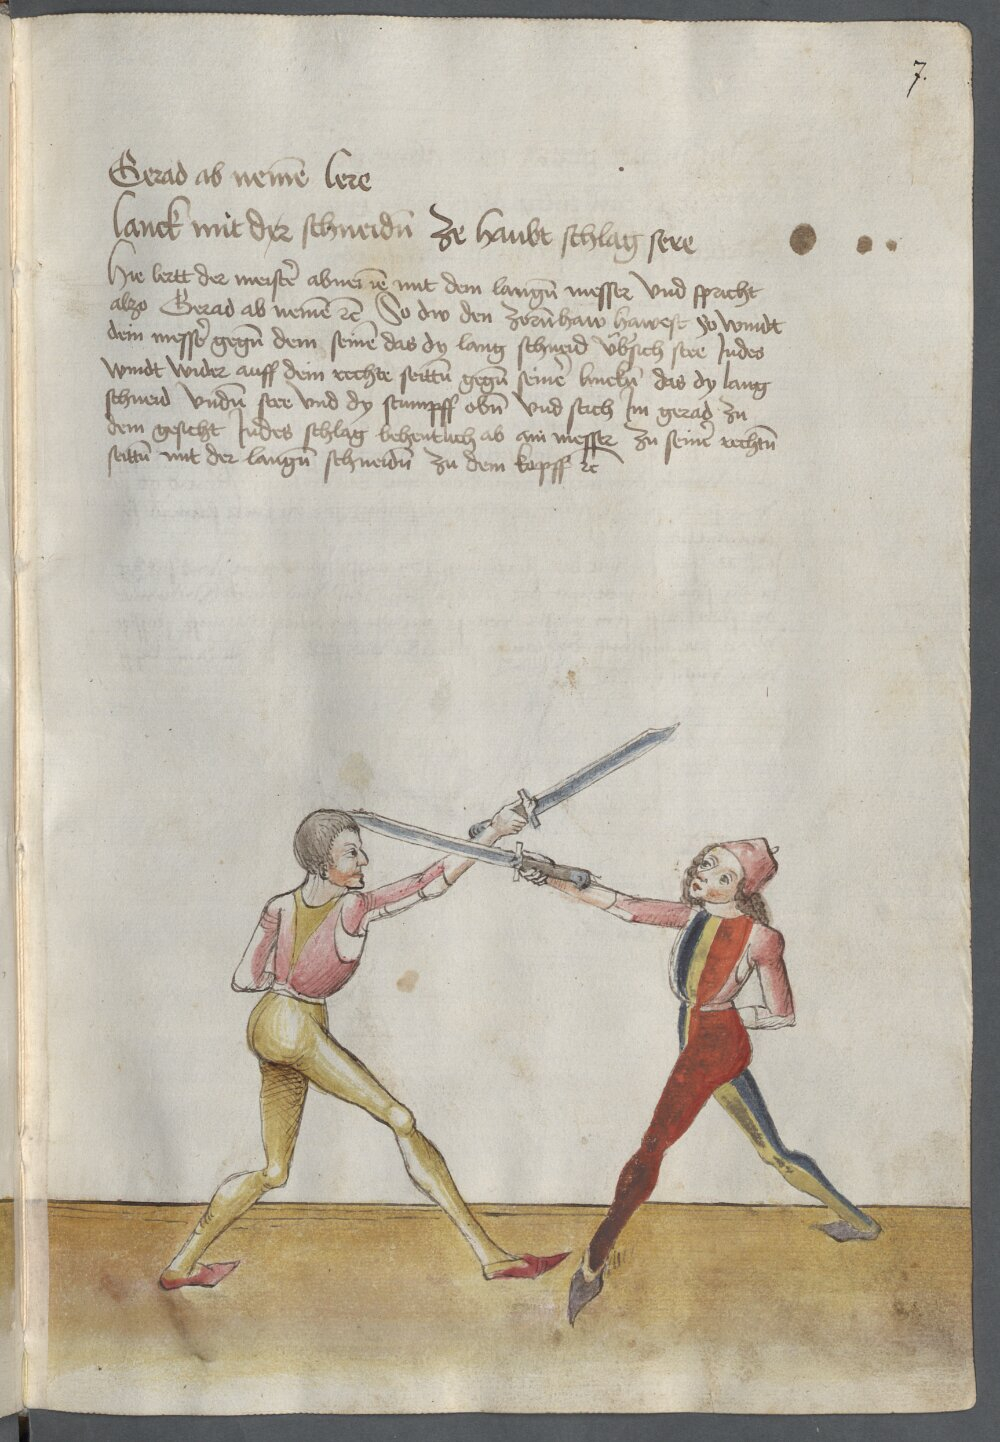 7.
Gerad ab nemē lere
lanck mit der schneidn̄ ze haubt schlag sere
Hie lertt der meist' abnemē mit dem langn̄ messer vnd spricht
alzo Gerad ab nemē rc So dw den zorn̄haw hawest so windt
dein mess' gegn̄ dem seinē das dy lang schneid vb'sich stee Indes
windt wider auff dein rechte seittn̄ gegn̄ seinē buchn̄ das dy lang
schneid vndn̄ stee vnd dy stumpff obn̄ vnd stich Im gerad zu
dem gesicht Indes schlag behentlich ab am messer zu sein' rechtn̄
seittn̄ mit der langn̄ schneidn̄ zu dem kopff rc